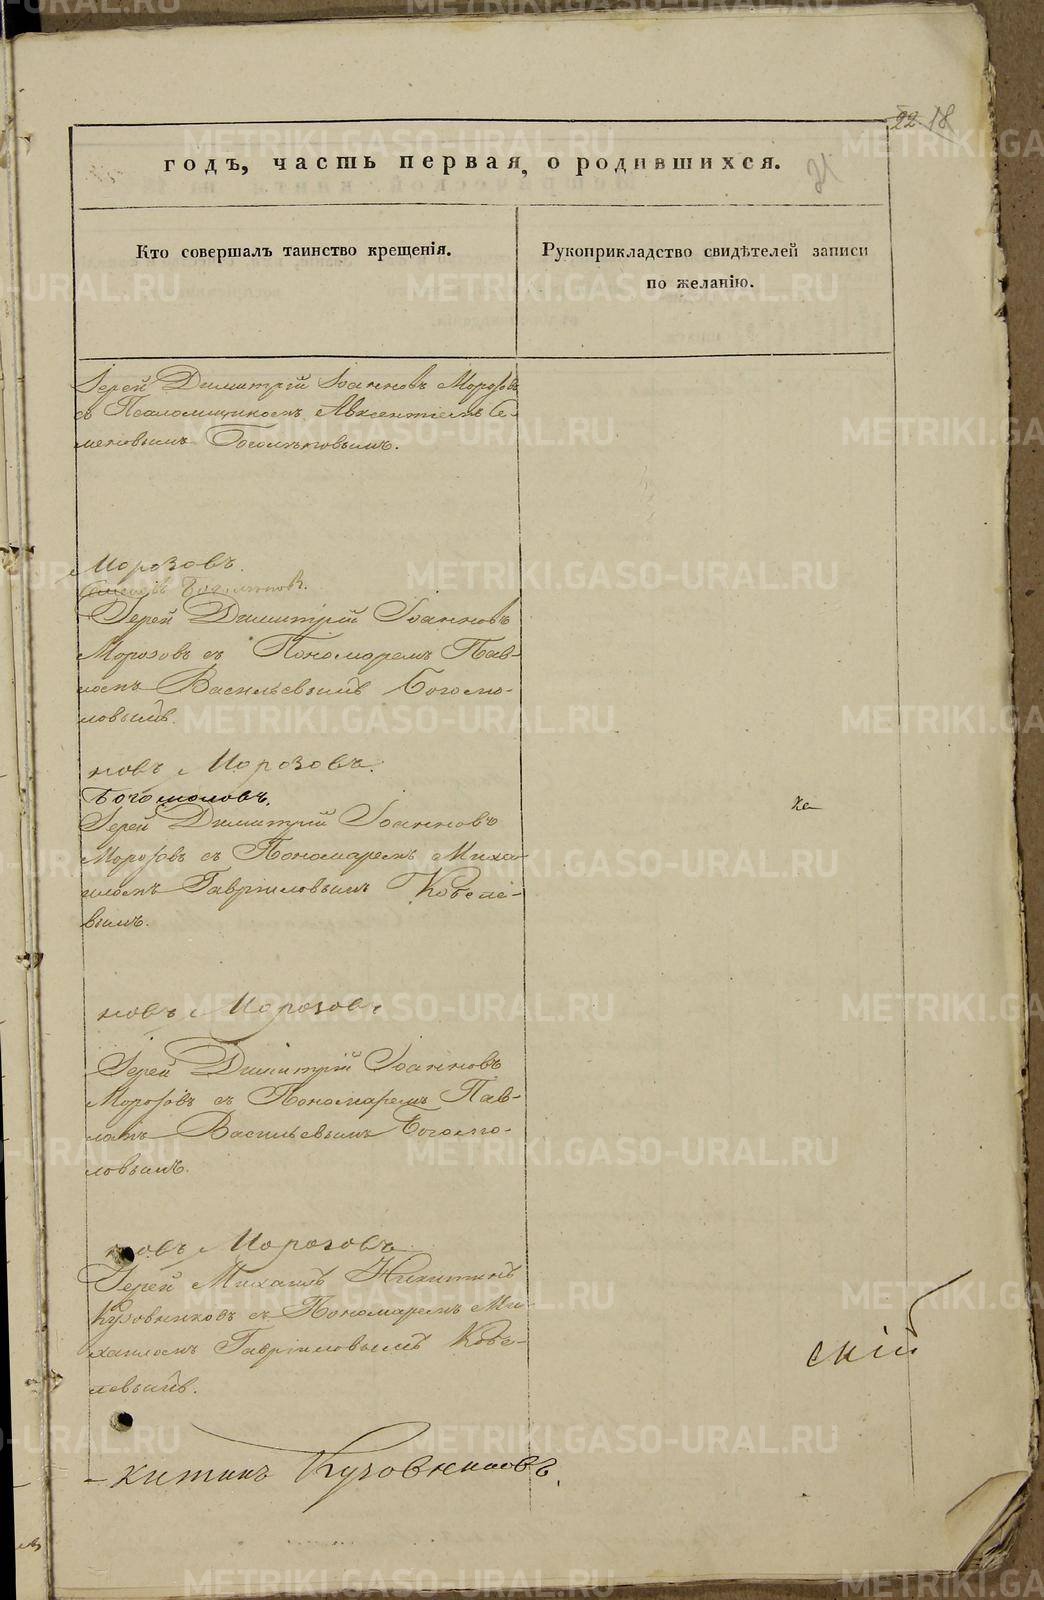 22 18
21
годъ, часть первая, о родившихся.
Кто совершалъ таинство крещенія.
Рукоприкладство свидѣтелей записи
по желанію.
Іерей Димитрій Іоанновъ Морозовъ
съ Псаломщикомъ Авксентіемъ Се-
меновымъ
Морозовъ.
Іерей Димитрій Іоанновъ
Морозовъ съ Пономаремъ Пав-
ломъ Васильевымъ Богомо-
ловымъ.
новъ Морозовъ.
Богомоловъ.
Іерей Димитрій Іоанновъ
Морозовъ съ Пономаремъ Миха-
иломъ Гавриловымъ Кобеле-
вымъ.
новъ Морозовъ
Іерей Димитрій Іоанновъ
Морозовъ съ Пономаремъ Пав-
ломъ Васильевымъ Богомо-
ловымъ.
новъ Морозовъ
Іерей Михаилъ Никитинъ
Кузовниковъ съ Пономаремъ Ми-
хаиломъ Гавриловымъ Кобе-
левымъ.
скій
-китинъ Кузовниковъ.
METRIKI.GASO-URAL.RU